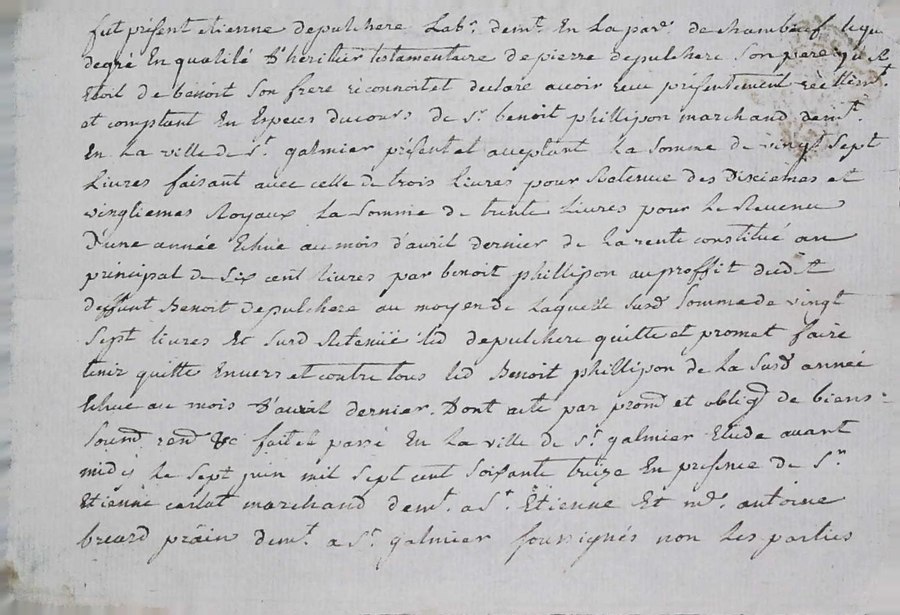 fut présent etienne depulchere Lab.r dem.t En La par.e de chambeuf lequel
degré En qualité D'héritier testamentaire de pierre depulchere Son pere
Etoit de benoit Son frere reconnoit et declare avoir reçu présentement réellem.t
et comptant En Especes du cours de S.r benoit phillipon marchand dem.t
En La ville de S.t galmier présent et acceptant La Somme de vingt Sept
Livres faisant avec celle de trois Livres pour Retenue des Dixiemes et
vingtiemes Royaux La Somme de trente Livres pour Le Revenu
D'une année Echue au mois d'avril dernier de La rente constitué au
principal de Six cent Livres par benoit phillipon au proffit dudt
deffunt Benoit depulchere au moyen de Laquelle Susd Somme de vingt
Sept Livres Et Susd Retenüe Led depulchere quitte et promet faire
tenir quitte Envers et contre tous Led Benoit phillipon de La Susd année
Echue au mois D'avril dernier. Dont acte par prom et oblig de biens =
Soum ren &c fait et passé En La ville de S.t galmier Etude avant
midy Le Sept juin mil Sept cent Soixante treize En présence de S.r
Etienne carlat marchand dem.t a S.t Etienne Et m.e antoine
breard dem.t a S.t galmier soussignés non Les parties